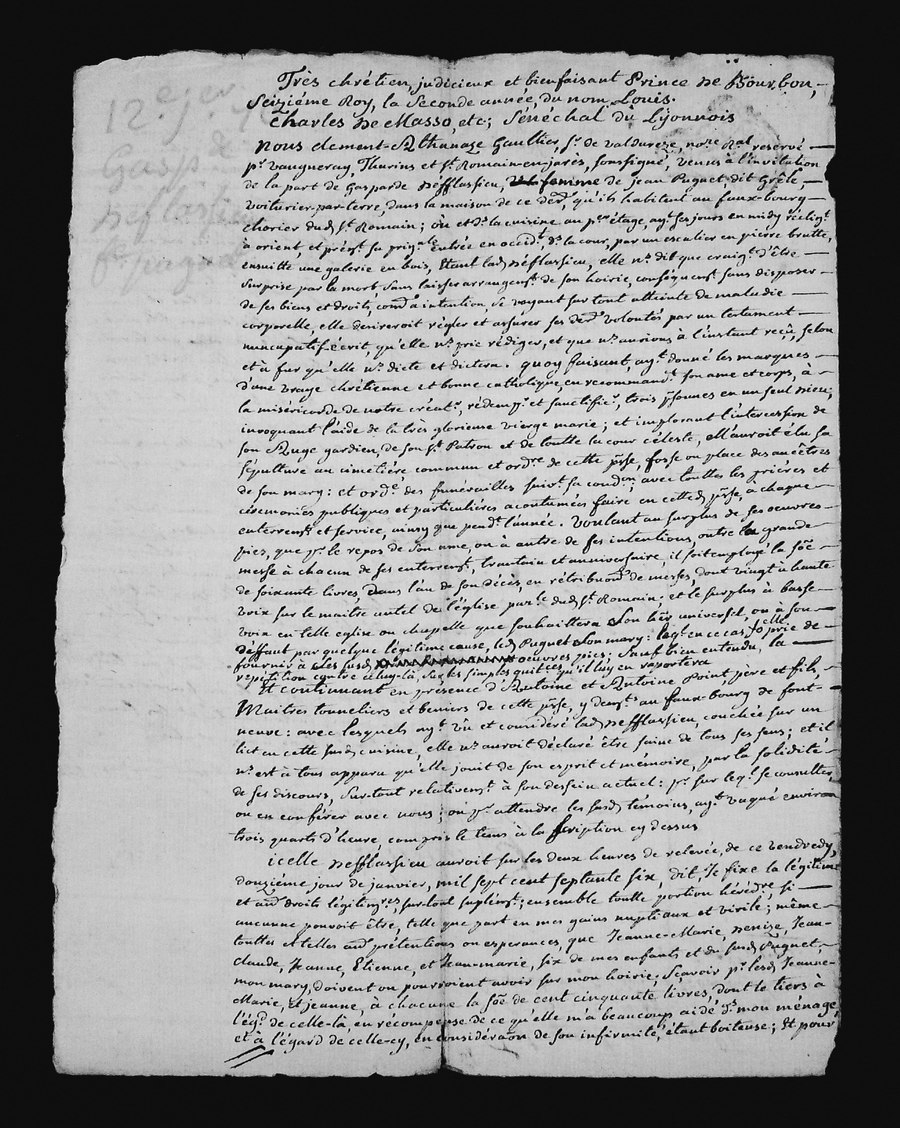 12e jer 76
Gaspde
Nefflassieu
fe puguet
Très chrétien, judicieux et bienfaisant Prince De Bourbon,
Seiziéme Roy, la Seconde année, du nom Louis.
Charles De Masso, etc; Sénéchal du Lyonnois
Nous Clement-Athanaze Gaultier, sr. de valdureze, nore Ral reservé
pr. Vaugneray, Thurins et st. Romain-en-jarès, soussigné, venus à l'invitation
de la part de Gasparde Nefflassieu, femme de jean Puguet, dit Grêle,
voiturier-par-terre, dans la maison de ce derr. qu'ils habitent au faux-bourg
chorier dud. st. Romain; où etd. la cuisine au pr. étage, ayt. ses jours en midy
à orient, et prést. sa prigale. entrée en occidt, ds. la cour, par un escalier en pierre brutte,
ensuitte une galerie en bois, Etant lad. Nefflassieu, elle ns. dit que craigt. d'être
surprise par la mort, sans laisser arrangemt. de son hoirie, conséquemt. sans disposer
de ses biens et droits, come. a intention, se voyant sur tout atteinte de maladie
corporelle, elle desireroit régler et assurer ses dern. volontés par un testament
nuncupatif-écrit, qu'elle ns. prie rédiger, et que ns. aurions à l'instant reçû, selon
et à fur qu'elle ns. dicte et dictera. quoy faisant, ayt. donné les marques
d'une vraye chrétienne et bonne catholique, en recommandt. son ame et corps, à
la miséricorde de notre créatr., rédempr. et sanctificr., trois psonnes en un seul Dieu;
invoquant l'aide de la très glorieuse vierge marie; et implorant l'intercession de
son Ange gardien, de son st. Patron et de toutte la cour céleste, Ell'auroit élu sa
sépulture au cimetiére, commun et ordre. de cette psse, fosse ou place des ancêtres
de son mary: et orde. des funérailles suivt. sa condon; avec touttes les prières et
cérémonies publiques et particulières acoutumées faire en cetted. psse, a chaque
enterremt. et service, ainsy que pendt. l'année. Voulant au surplus de ses oeuvres
pies, que pr. le repos de son ame, ou à autre de ses intentions, outre la grande
messe à chacun de ses enterremt., trantain et anniversaire, il soit employé la soe
de soixante livres, dans l'an de son décès, en rétribuons. de messes, dont vingt à haute
voix sur le maitre autel de l'église parle. dud. st. Romain: et le surplus à basse
voix en telle eglise ou chapelle que souhaittera son hér. universel, ou à son
deffaut par quelque légitime cause, led. Puguet son mary: leql. en ce cas elle prie de
fournir à sesd. oeuvres pies; sauf bien entendu, la
répétition contre celuy-là, sur les simples quitces. qu'il luy en raportera
Et continuant en présence d'Antoine et Antoine Point, père et fils,
Maitres tonneliers et beniers de cette psse, y demt. au faux-bourg de font-
neuve: avec lesquels ayt. vû et considéré lad. Nefflassieu, couchée sur un
lict en cette susd. cuisine, elle ns. auroit déclaré être saine de tous ses sens; et il
ns. est à tous apparu qu'elle jouit de son esprit et mémoire, par la solidité
de ses discours, sur-tout relativemt. à son dessein actuel: pr. sur leql. se consulter,
ou en conférer avec nous; ou pr. attendre les susd. témoins, ayt. vaqué environ
trois quarts d'heure, compris le tems à la scription cy dessus
icelle Nefflassieu auroit sur les deux heures de relevée, de ce vendredy,
douziéme jour de janvier, mil sept cent septante six, dit, Je fixe la légitime
et aud. droits légitimres, sur-tout suplémt.; ensemble toutte portion hérédre, si
aucunne pouvoit être, telle que part en mes gains nuptiaux et virile; même
touttes et telles aud. prétentions ou esperances, que Jeanne-Marie, Denise, Jean-
claude, Jeanne, Etienne, et Jean-marie, six de mes enfants et du susd. Puguet,
mon mary, doivent ou pourroient avoir sur mon hoirie; Sçavoir pr. lesd. Jeanne-
Marie, et jeanne, à chacune la soe de cent cinquante livres, dont le tiers à
l'égd. de celle-là, en récompense de ce qu'elle m'a beaucoup aidé ds. mon ménage,
et à l'égard de celle-cy, en considéraon de son infirmité, étant boiteuse; Et pour